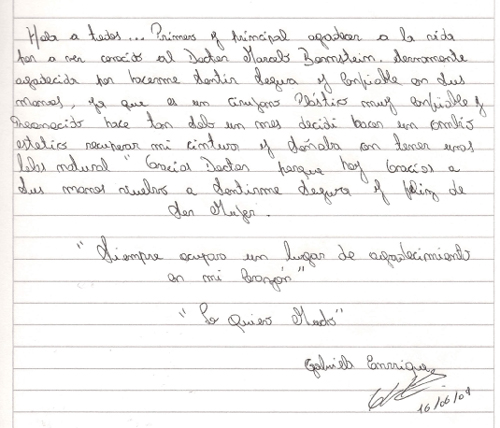 Hola a todos... Primero y principal agradecer a la vida
por a ver conocido al Doctor Marcelo Bernstein, eternamente
agradecida por hacerme sentir segura y confiable en sus
manos, ya que es un cirujano Plástico muy confiable y
Reconocido hace tan solo un mes decidí hacer un cambio
estetico recuperar mi cintura y soñaba con tener unas
lolas natural "Gracias Doctor porque hoy Gracias a
sus manos vuelvo a sentirme segura y feliz de
ser Mujer.
"Siempre ocupara un lugar de agradecimiento
en mi Corazón"
"Lo Quiero Mucho"
Gabriela Enrrique
16/06/09